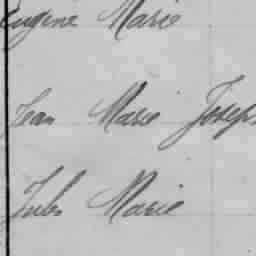 Eugene Marie
Jean Marie Joseph
Jules Marie